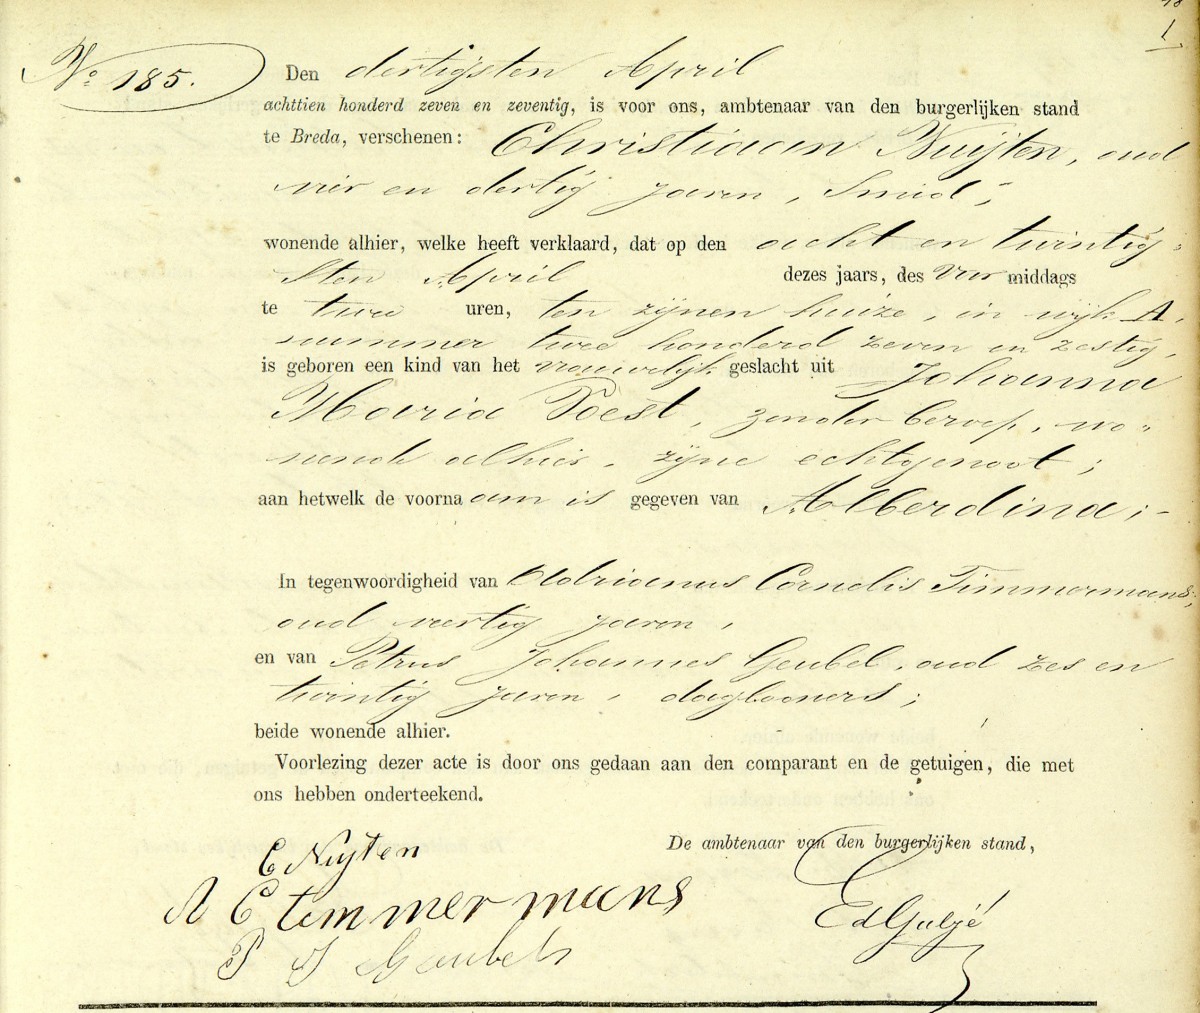 1
No. 185. Den dertigsten April
achttien honderd zeven en zeventig, is voor ons, ambtenaar van den burgerlijken stand
te Breda, verschenen: Christiaan Nuijten, oud
vier en dertig jaren, Smid,
wonende alhier, welke heeft verklaard, dat op den acht en twintig-
sten April dezes jaars, des voormiddags
te twee uren, ten zijnen huize, in wijk A,
nummer twee honderd zeven en zestig,
is geboren een kind van het vrouwelijk geslacht uit Johanna
Maria Poest, zonder beroep, wo-
nende alhier, zijne echtgenoot;
aan hetwelk de voornaam is gegeven van Alberdina;-
In tegenwoordigheid van Adrianus Cornelis Timmermans,
oud veertig jaren,
en van Petrus Johannes Geubel, oud zes en
twintig jaren, daglooners;
beide wonende alhier.
Voorlezing dezer acte is door ons gedaan aan den comparant en de getuigen, die met
ons hebben onderteekend.
De ambtenaar van den burgerlijken stand,
C Nuyten
A C temmermans
Ed Guljé
P J Geubels